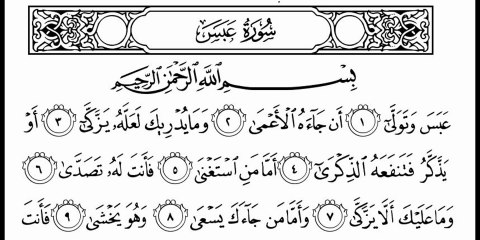 سُورَةُ عَبَسَ
بِسْمِ اللَّهِ الرَّحْمَٰنِ الرَّحِيمِ
عَبَسَ وَتَوَلَّىٰٓ ١ أَن جَآءَهُ ٱلْأَعْمَىٰ ٢ وَمَا يُدْرِيكَ لَعَلَّهُۥ يَزَّكَّىٰٓ ٣ أَوْ
يَذَّكَّرُ فَتَنفَعَهُ ٱلذِّكْرَىٰٓ ٤ أَمَّا مَنِ ٱسْتَغْنَىٰ ٥ فَأَنتَ لَهُۥ تَصَدَّىٰ ٦
وَمَا عَلَيْكَ أَلَّا يَزَّكَّىٰ ٧ وَأَمَّا مَن جَآءَكَ يَسْعَىٰ ٨ وَهُوَ يَخْشَىٰ ٩ فَأَنتَ